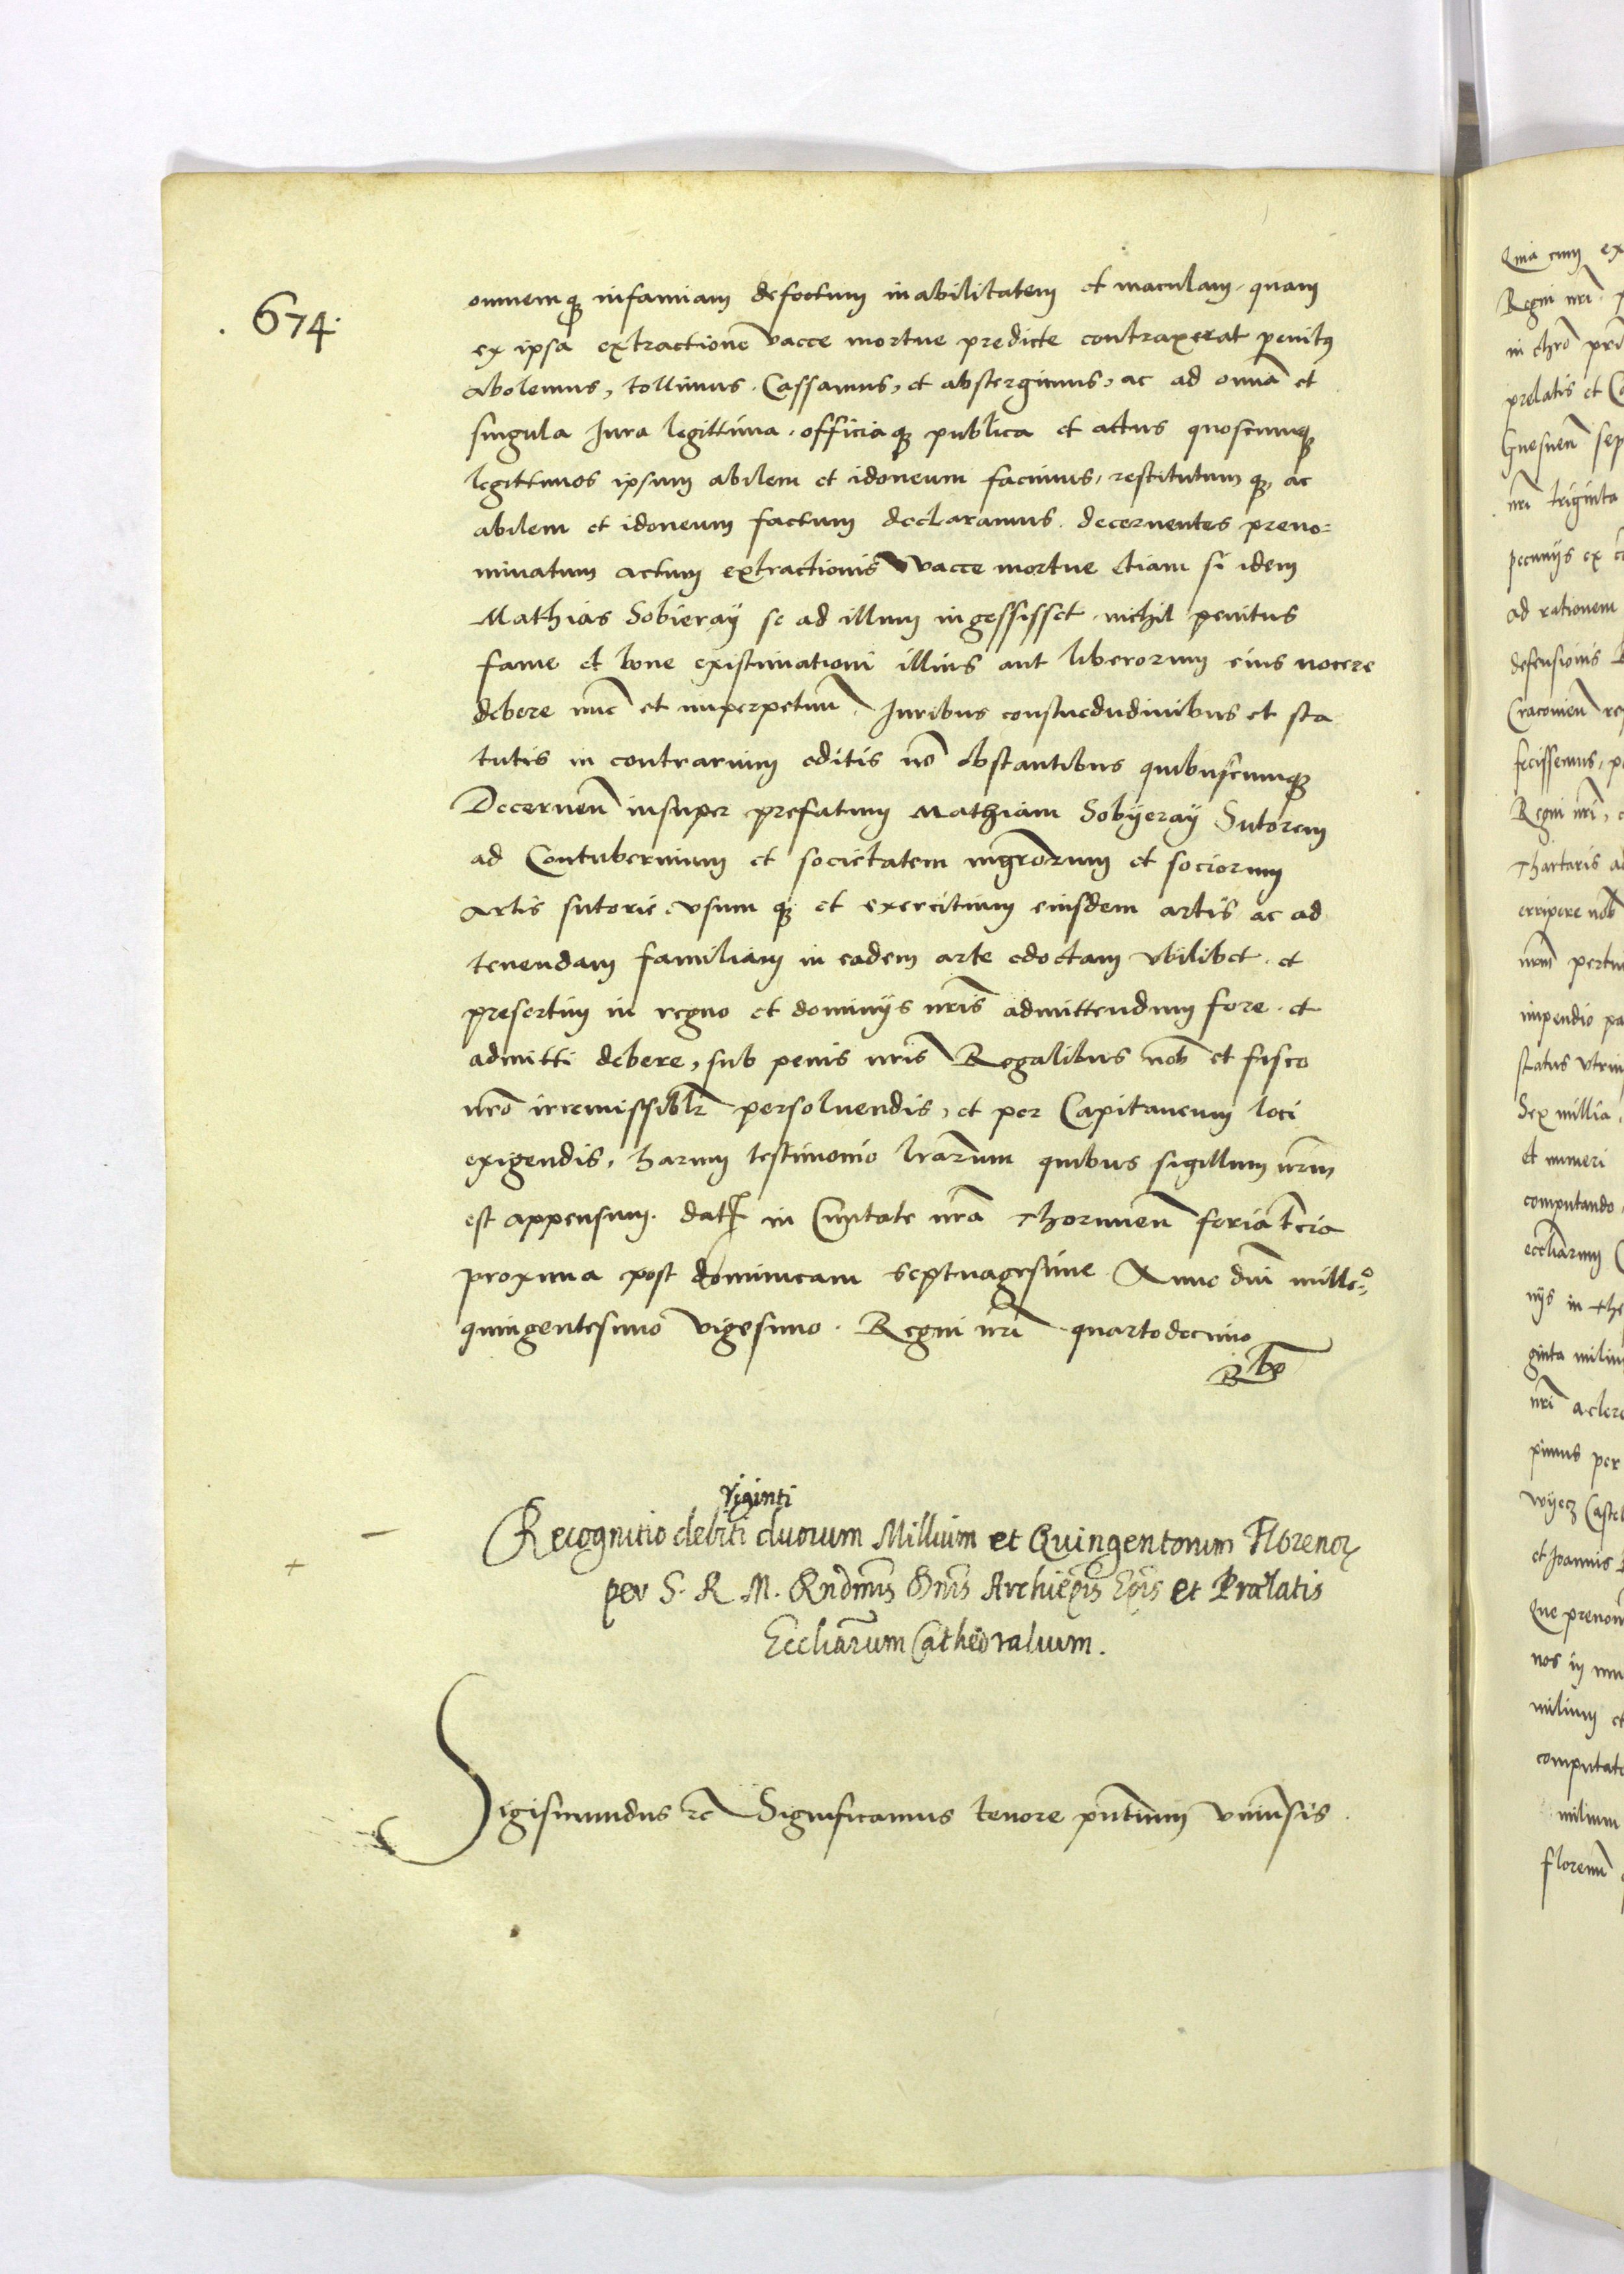 . 674.
omnemq infamiam defectum inabilitatem et maculam, quam
ex ipsa extractione vacce mortue predicte contraxerat penitus
abolemus, tollimus, Cassamus, et abstergimus, ac ad omia et
singula Jura legittima, officiaq publica et actus quoscumq
legittimos ipsum abilem et idoneum facimus, restitutum q, ac
abilem et idoneum factum declaramus. decernentes preno=
minatum actum extractionis vacce mortue etiam si idem
Mathias Sobieray se ad illum ingessisset, nichil penitus
fame et bone existimationi illius aut liberorum eius nocere
debere nunc et inperpetuum. Juribus consuedudinibus et sta
tutis in contrarium editis no obstantibus quibuscumq
Decernen insuper prefatum Mathiam Sobyeray Sutorem
ad Contubernium et societatem mgrorum et sociorum
artis sutorie, vsum q et exercitium eiusdem artis ac ad
tenendam familiam in eadem arte edoctam vbilibet, et
presertim in regno et dominijs nris admittendum fore, et
admitti debere, sub penis nris Regalibus nob et fisco
nro irremissiblr persoluendis, et per Capitaneum loci
exigendis, harum testimonio lrarum quibus sigillum nrm
est appensum. dat in Ciuitate nra Thorunen feria tcia
proxima post dominicam Septuagesime Anno dni mille=o
quingentesimo vigesimo. Regni nri quartodecimo
Viginti
Recognitio debiti duorum Millium et Quingentorum Florenor
per S. R. M. Rndmis Dnis Archiepis Epis et Prælatis
Eccliarum Cathedralium.
Sigismundus rc Significamus tenore pntium vniuersis
Quia cum ex
Regni nri
in chro
prelatis et
Gnesnen sep
nri triginta
pecunijs ex
ad rationem
defensionis
Cracouien
fecissemus,
Regni nri,
Thartaris
erripere nob
impendio pa
status
Sex millia
et numeri
computando
eccliarum
nijs in
ginta milium
nri a clero
pimus per
Castel
et Joannis
Que prenom
nos in
milium et
computat
milium
floren